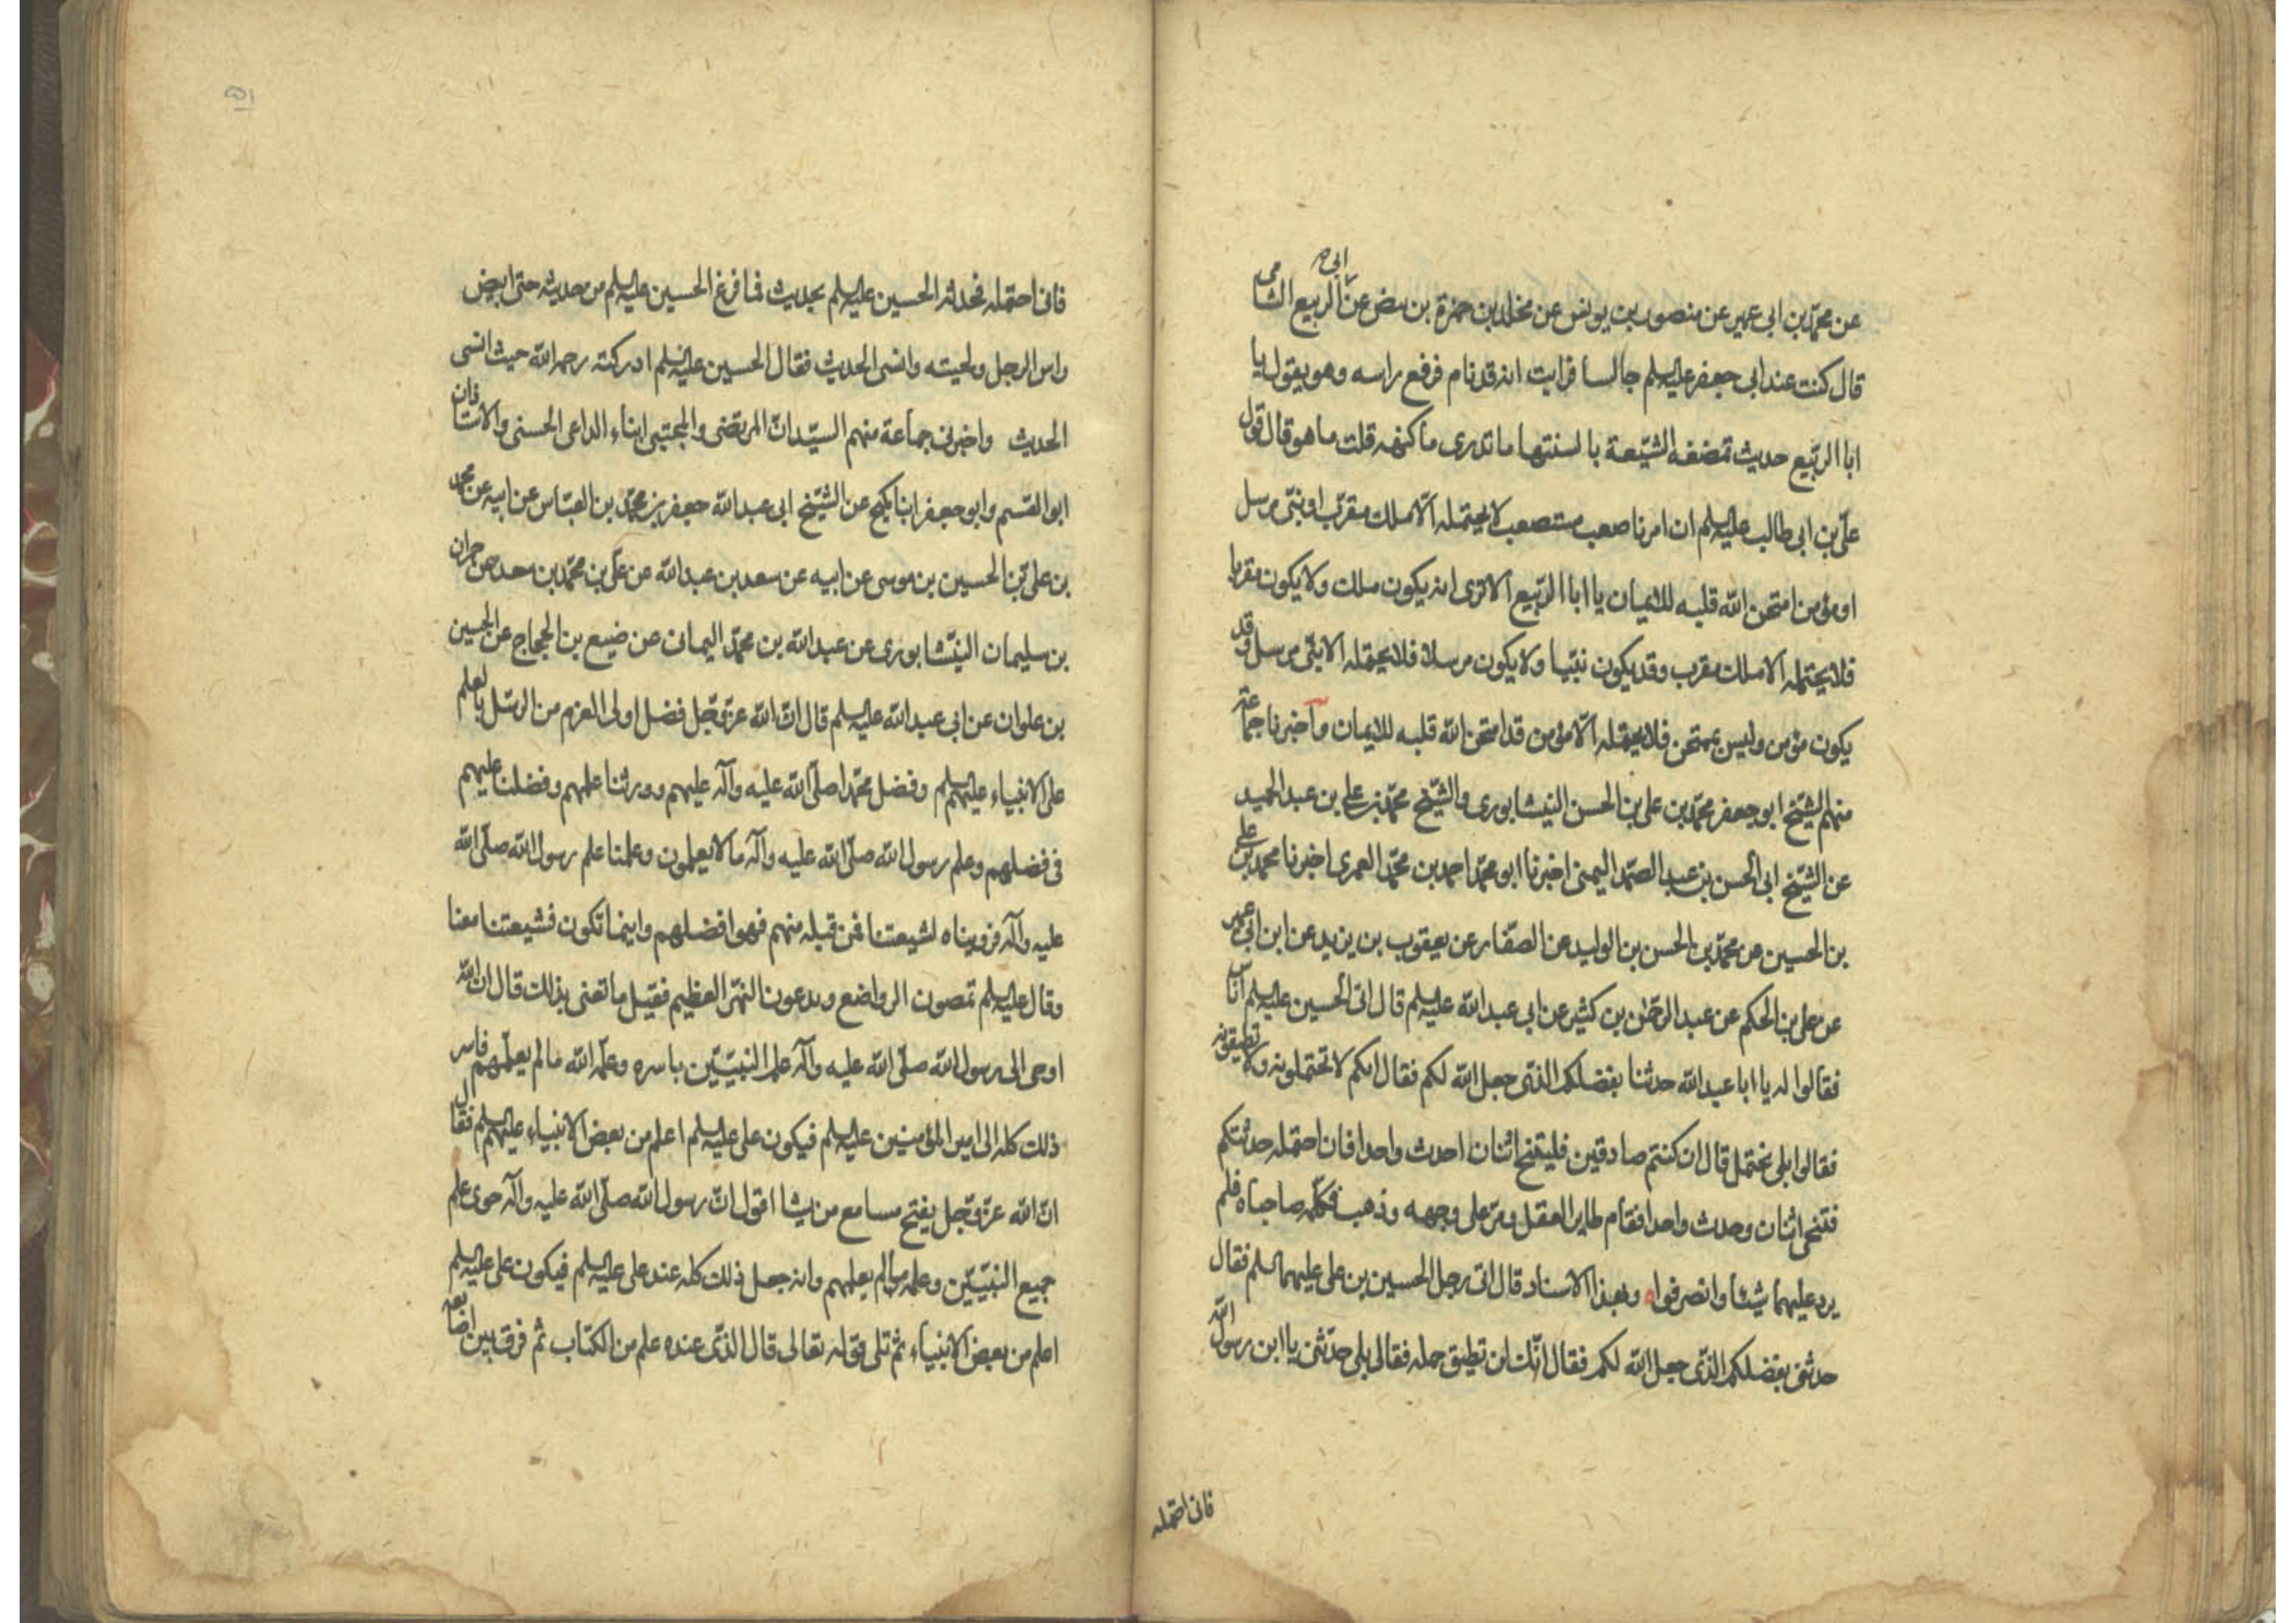 عن محمّد بن ابى عمير عن منصور بن يونس عن مخلد بن حمزة بن نض عن ابى الربيع الشامى
قال كنت عند ابى جعفر عليه السلم جالسا فرايت انه قد نام فرفع راسه وهو يقول يا
ابا الربيع حديث تمضغه الشيعة بالسنتها ما تدرى ما كنهه قلت ما هو قال قول
على بن ابى طالب عليه السلم ان امرنا صعب مستصعب لا يحتمله الا ملك مقرب او نبى مرسل
او مؤمن امتحن الله قلبه للايمان يا ابا الربيع الا ترى انه يكون ملك ولا يكون مقربا
فلا يحتمله الا ملك مقرب وقد يكون نبيا ولا يكون مرسلا فلا يحتمله الا نبى مرسل وقد
يكون مؤمن وليس بممتحن فلا يحتمله الا مؤمن قد امتحن الله قلبه للايمان واخبرنا جماعة
منهم الشيخ ابو جعفر محمد بن على بن الحسن النيشابورى والشيخ محمد بن على بن عبد الحميد
عن الشيخ ابى الحسن بن عبد الصمد اليمنى اخبرنا ابو محمد احمد بن محمد العمرى اخبرنا محمد بن على
بن الحسين عن محمد بن الحسن بن الوليد عن الصفار عن يعقوب بن يزيد عن ابن ابى عمير
عن على بن الحكم عن عبد الرحمن بن كثير عن ابى عبد الله عليه السلم قال اتى الحسين عليه السلم اناس
فقالوا له يا ابا عبد الله حدثنا بفضلكم الذى جعل الله لكم فقال انكم لا تحتملونه ولا تطيقونه
فقالوا بلى نحتمل قال ان كنتم صادقين فليتنح اثنان احدث واحدا فان احتمله حدثتكم
فتنحى اثنان وحدث واحدا فقام طاير العقل ومر على وجهه وذهب فكلمه صاحباه فلم
يرد عليهما شيئا وانصرفوا وبهذا الاسناد قال اتى رجل الحسين بن على عليهما السلم فقال
حدثنى بفضلكم الذى جعل الله لكم فقال انك لن تطيق حمله فقال بلى حدثنى يا ابن رسول الله
فانى احتمله
۵۱
فانى احتمله فحدثه الحسين عليه السلم بحديث فما فرغ الحسين عليه السلم من حديثه حتى ابيض
راس الرجل ولحيته وانسى الحديث فقال الحسين عليه السلم ادركته رحمه الله حيث انسى
الحديث واخبرنى جماعة منهم السيدان المرتضى والمجتبى ابناء الداعى الحسنى والاستاذان
ابو القسم وابو جعفر ابنا كميح عن الشيخ ابى عبد الله جعفر بن محمد بن العباس عن ابيه عن محمد
بن على بن الحسين بن موسى عن ابيه عن سعد بن عبد الله عن على بن محمد بن سعد عن حمران
بن سليمان النيشابورى عن عبد الله بن محمد اليمانى عن ضيع بن الحجاج عن الحسين
بن علوان عن ابى عبد الله عليه السلم قال ان الله عز وجل فضل اولى العزم من الرسل بالعلم
على الانبياء عليهم السلم وفضل محمدا صلى الله عليه وآله عليهم وورثنا علمهم وفضلنا عليهم
فى فضلهم وعلم رسول الله صلى الله عليه وآله ما لا يعلمون وعلمنا علم رسول الله صلى الله
عليه وآله فرويناه لشيعتنا فمن قبله منهم فهو افضلهم واينما نكون فشيعتنا معنا
وقال عليه السلم تمصون الرواضع وتدعون النهر العظيم فقيل ما تعنى بذلك قال ان الله
اوحى الى رسول الله صلى الله عليه وآله علم النبيين باسره وعلمه الله ما لم يعلمهم فاسر
ذلك كله الى امير المؤمنين عليه السلم فيكون على عليه السلم اعلم من بعض الانبياء عليهم السلم فقال
ان الله عز وجل يفتح مسامع من يشا اقول ان رسول الله صلى الله عليه وآله حوى علم
جميع النبيين وعلمه ما لم يعلمهم وانه جعل ذلك كله عند على عليه السلم فيكون على عليه السلم
اعلم من بعض الانبياء ثم تلى قوله تعالى قال الذى عنده علم من الكتاب ثم فرق بين اصابعه